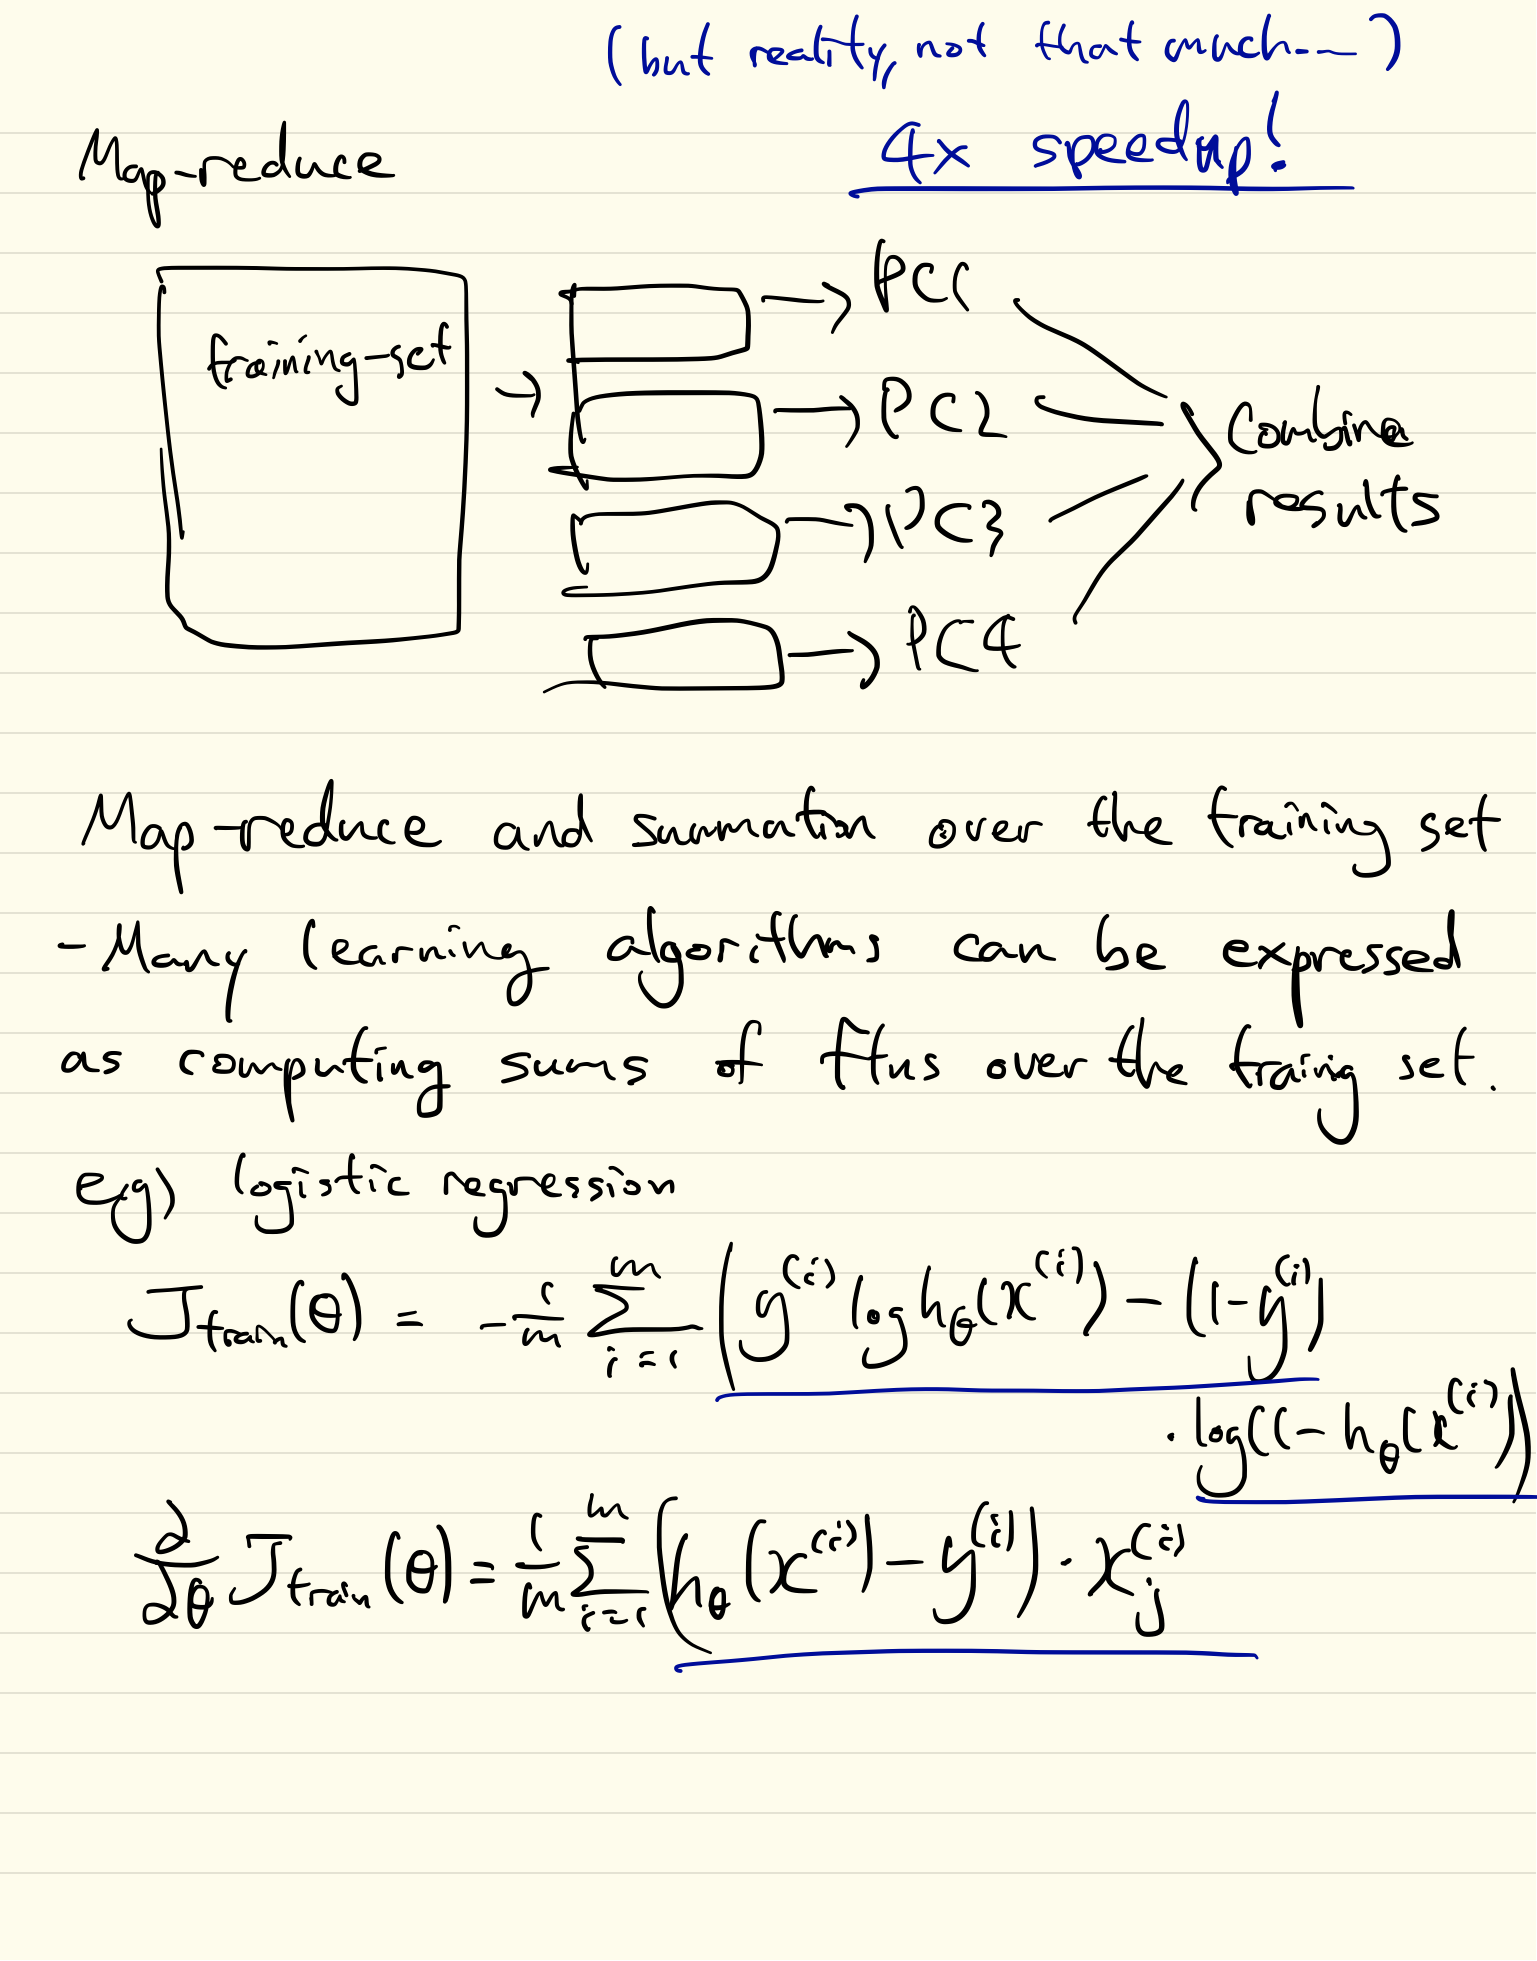 (but reality, not that much---)
4x speedup!
Map-reduce
training-set
PC1
PC2
PC3
PC4
Combine
results
Map-reduce and summation over the training set
- Many learning algorithms can be expressed
as computing sums of ftns over the traing set.
eg) logistic regression
J_train(θ) = -1/m ∑_{i=1}^{m} (y^{(i)} log h_θ(x^{(i)}) - (1-y^{(i)})
· log(1-h_θ(x^{(i)}))
∂/∂θ J_train(θ) = 1/m ∑_{i=1}^{m} (h_θ(x^{(i)}) - y^{(i)}) · x_j^{(i)}